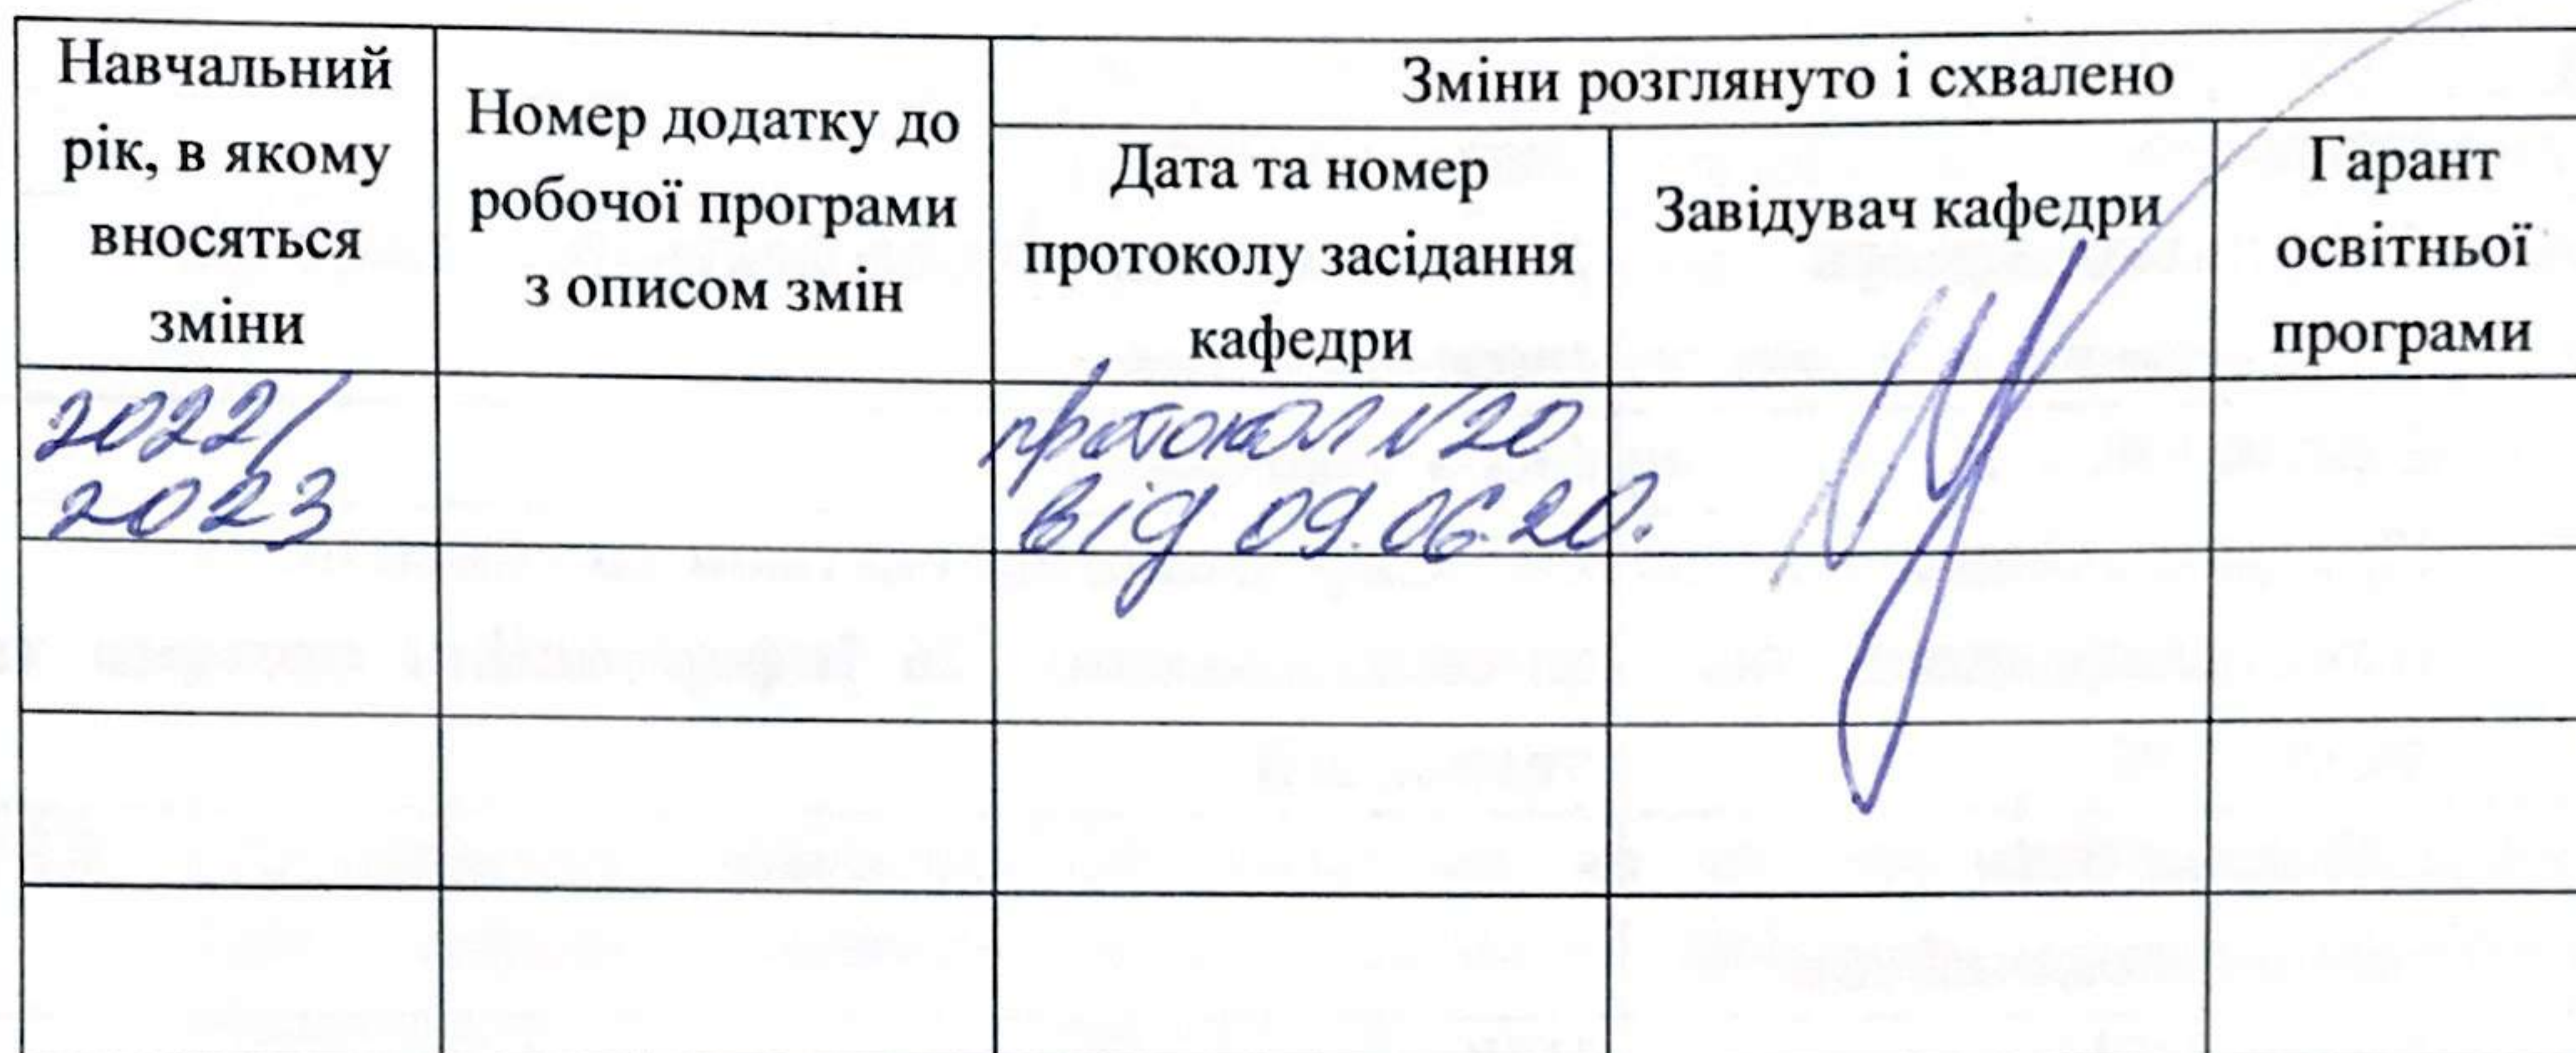 Навчальний
рік, в якому
вносяться
зміни
Номер додатку до
робочої програми
з описом змін
Зміни розглянуто і схвалено
Дата та номер
протоколу засідання
кафедри
Завідувач кафедри
Гарант
освітньої
програми
2022/
2023
протокол №20
від 09.06.20.